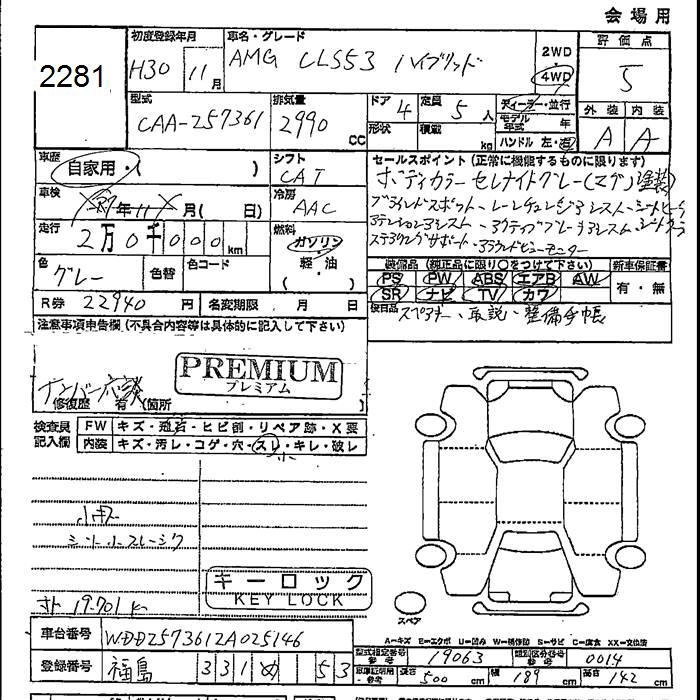 会場用
2281
初度登録年月 車名・グレード 評価点
H30 11月 AMG CLS53 ハイブリッド 2WD 4WD 5
型式 排気量 ドア 4 定員 5人 ディーラー・並行
CAA-257361 2990 CC 形状 積載 kg モデル年式 年
ハンドル 左・右 外装 内装
A A
車歴 自家用・( ) シフト CAT
セールスポイント(正常に機能するものに限ります)
ボディカラー セレナイトグレー(マグノ)塗装
ブラインドスポット・レーンチェンジアシスト・シートヒーター
アテンションアシスト・アクティブブレーキアシスト・
ステアリングサポート・アラウンドビューモニター
車検 年 11月( 日) 冷房 AAC
走行 2万0千000km 燃料 ガソリン 軽・油
色 グレー 色替 色コード
装備品(純正品に限り○をつけて下さい) 新車保証書
PS PW ABS エアB AW 有・無
SR ナビ TV カワ
R券 22940円 名変期限 月 日
後日品 スペアキー、取説、整備手帳
注意事項申告欄(不具合内容等は具体的に記入して下さい)
PREMIUM
プレミアム
ナンバー応談
修復歴 有(箇所
検査員記入欄 FW キズ・飛石・ヒビ割・リペア跡・X要
内装 キズ・汚レ・コゲ・穴・スレ・キレ・破レ
小
小キズ
シート小スレージワ
キーロック
KEY LOCK
19.701 k
スペア
車台番号 WDD2573612A025146
A=キズ E=エクボ U=凹み W=補修跡 S=サビ C=腐食 XX=交換済
型式指定番号 19063 類別区分番号 0014
登録番号 福島 331 53
長さ 500cm 幅 189cm 高さ 142cm